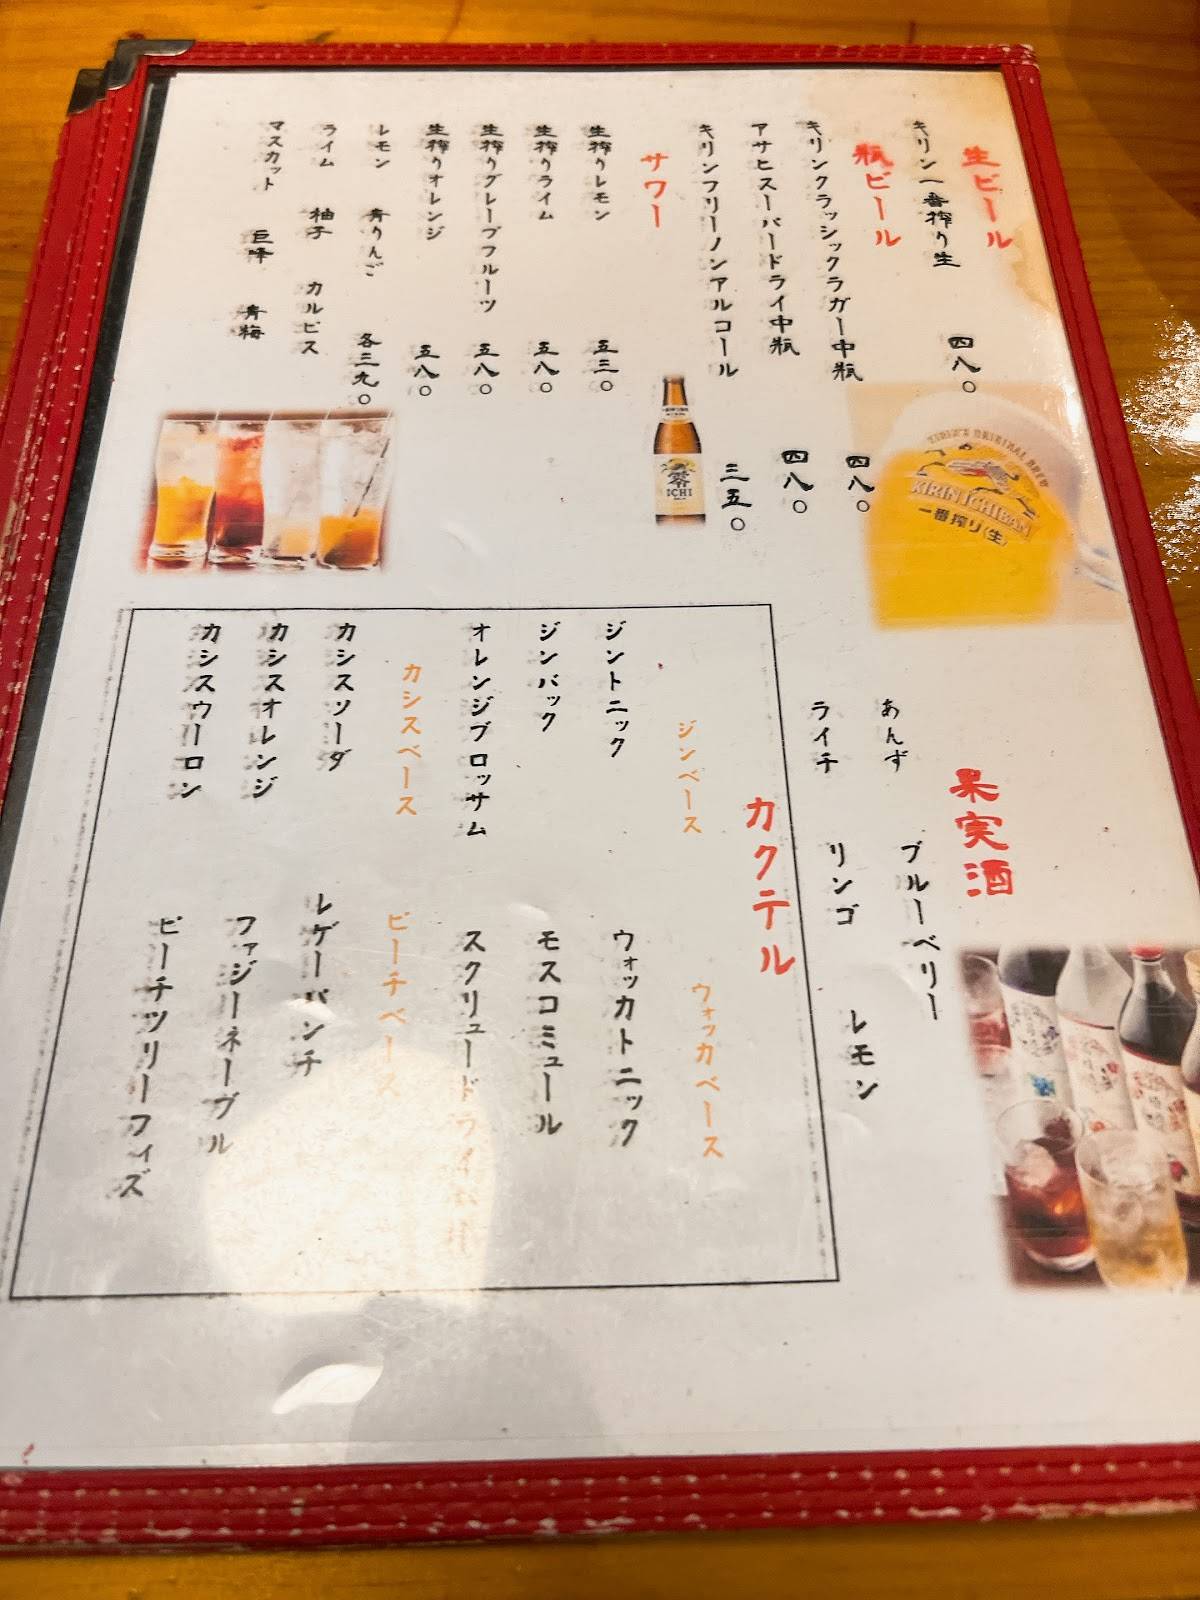 生ビール
キリン一番搾り生 四八〇
瓶ビール
キリンクラッシックラガー中瓶 四八〇
アサヒスーパードライ中瓶 四八〇
キリンフリーノンアルコール 三五〇
サワー
生搾りレモン 五三〇
生搾りライム 五八〇
生搾りグレープフルーツ 五八〇
生搾りオレンジ 五八〇
レモン 青りんご 各三九〇
ライム 柚子 カルピス
マスカット 巨峰 青梅
KIRIN ICHIBAN
一番搾り〈生〉
零
ICHI
果実酒
あんず ブルーベリー レモン
ライチ リンゴ
カクテル
ジンベース
ジントニック
ジンバック
オレンジブロッサム
ウォッカベース
ウォッカトニック
モスコミュール
スクリュードライバー
カシスベース
カシスソーダ
カシスオレンジ
カシスウーロン
ピーチベース
レゲーパンチ
ファジーネーブル
ピーチツリーフィズ